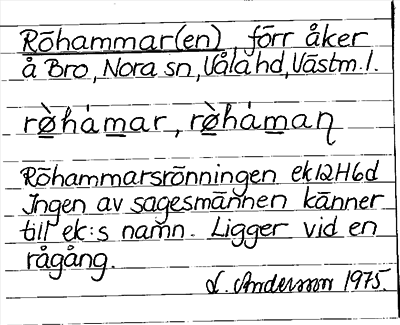 Röhammar(en), förr åker
å Bro, Nora sn, Våla hd, Västm.l.
rø̀hámar, rø̀hámaꞃ
Röhammarsrönningen ek 12H6d
Ingen av sagesmännen känner
till ek:s namn. Ligger vid en
rågång.
L. Andersson 1975.